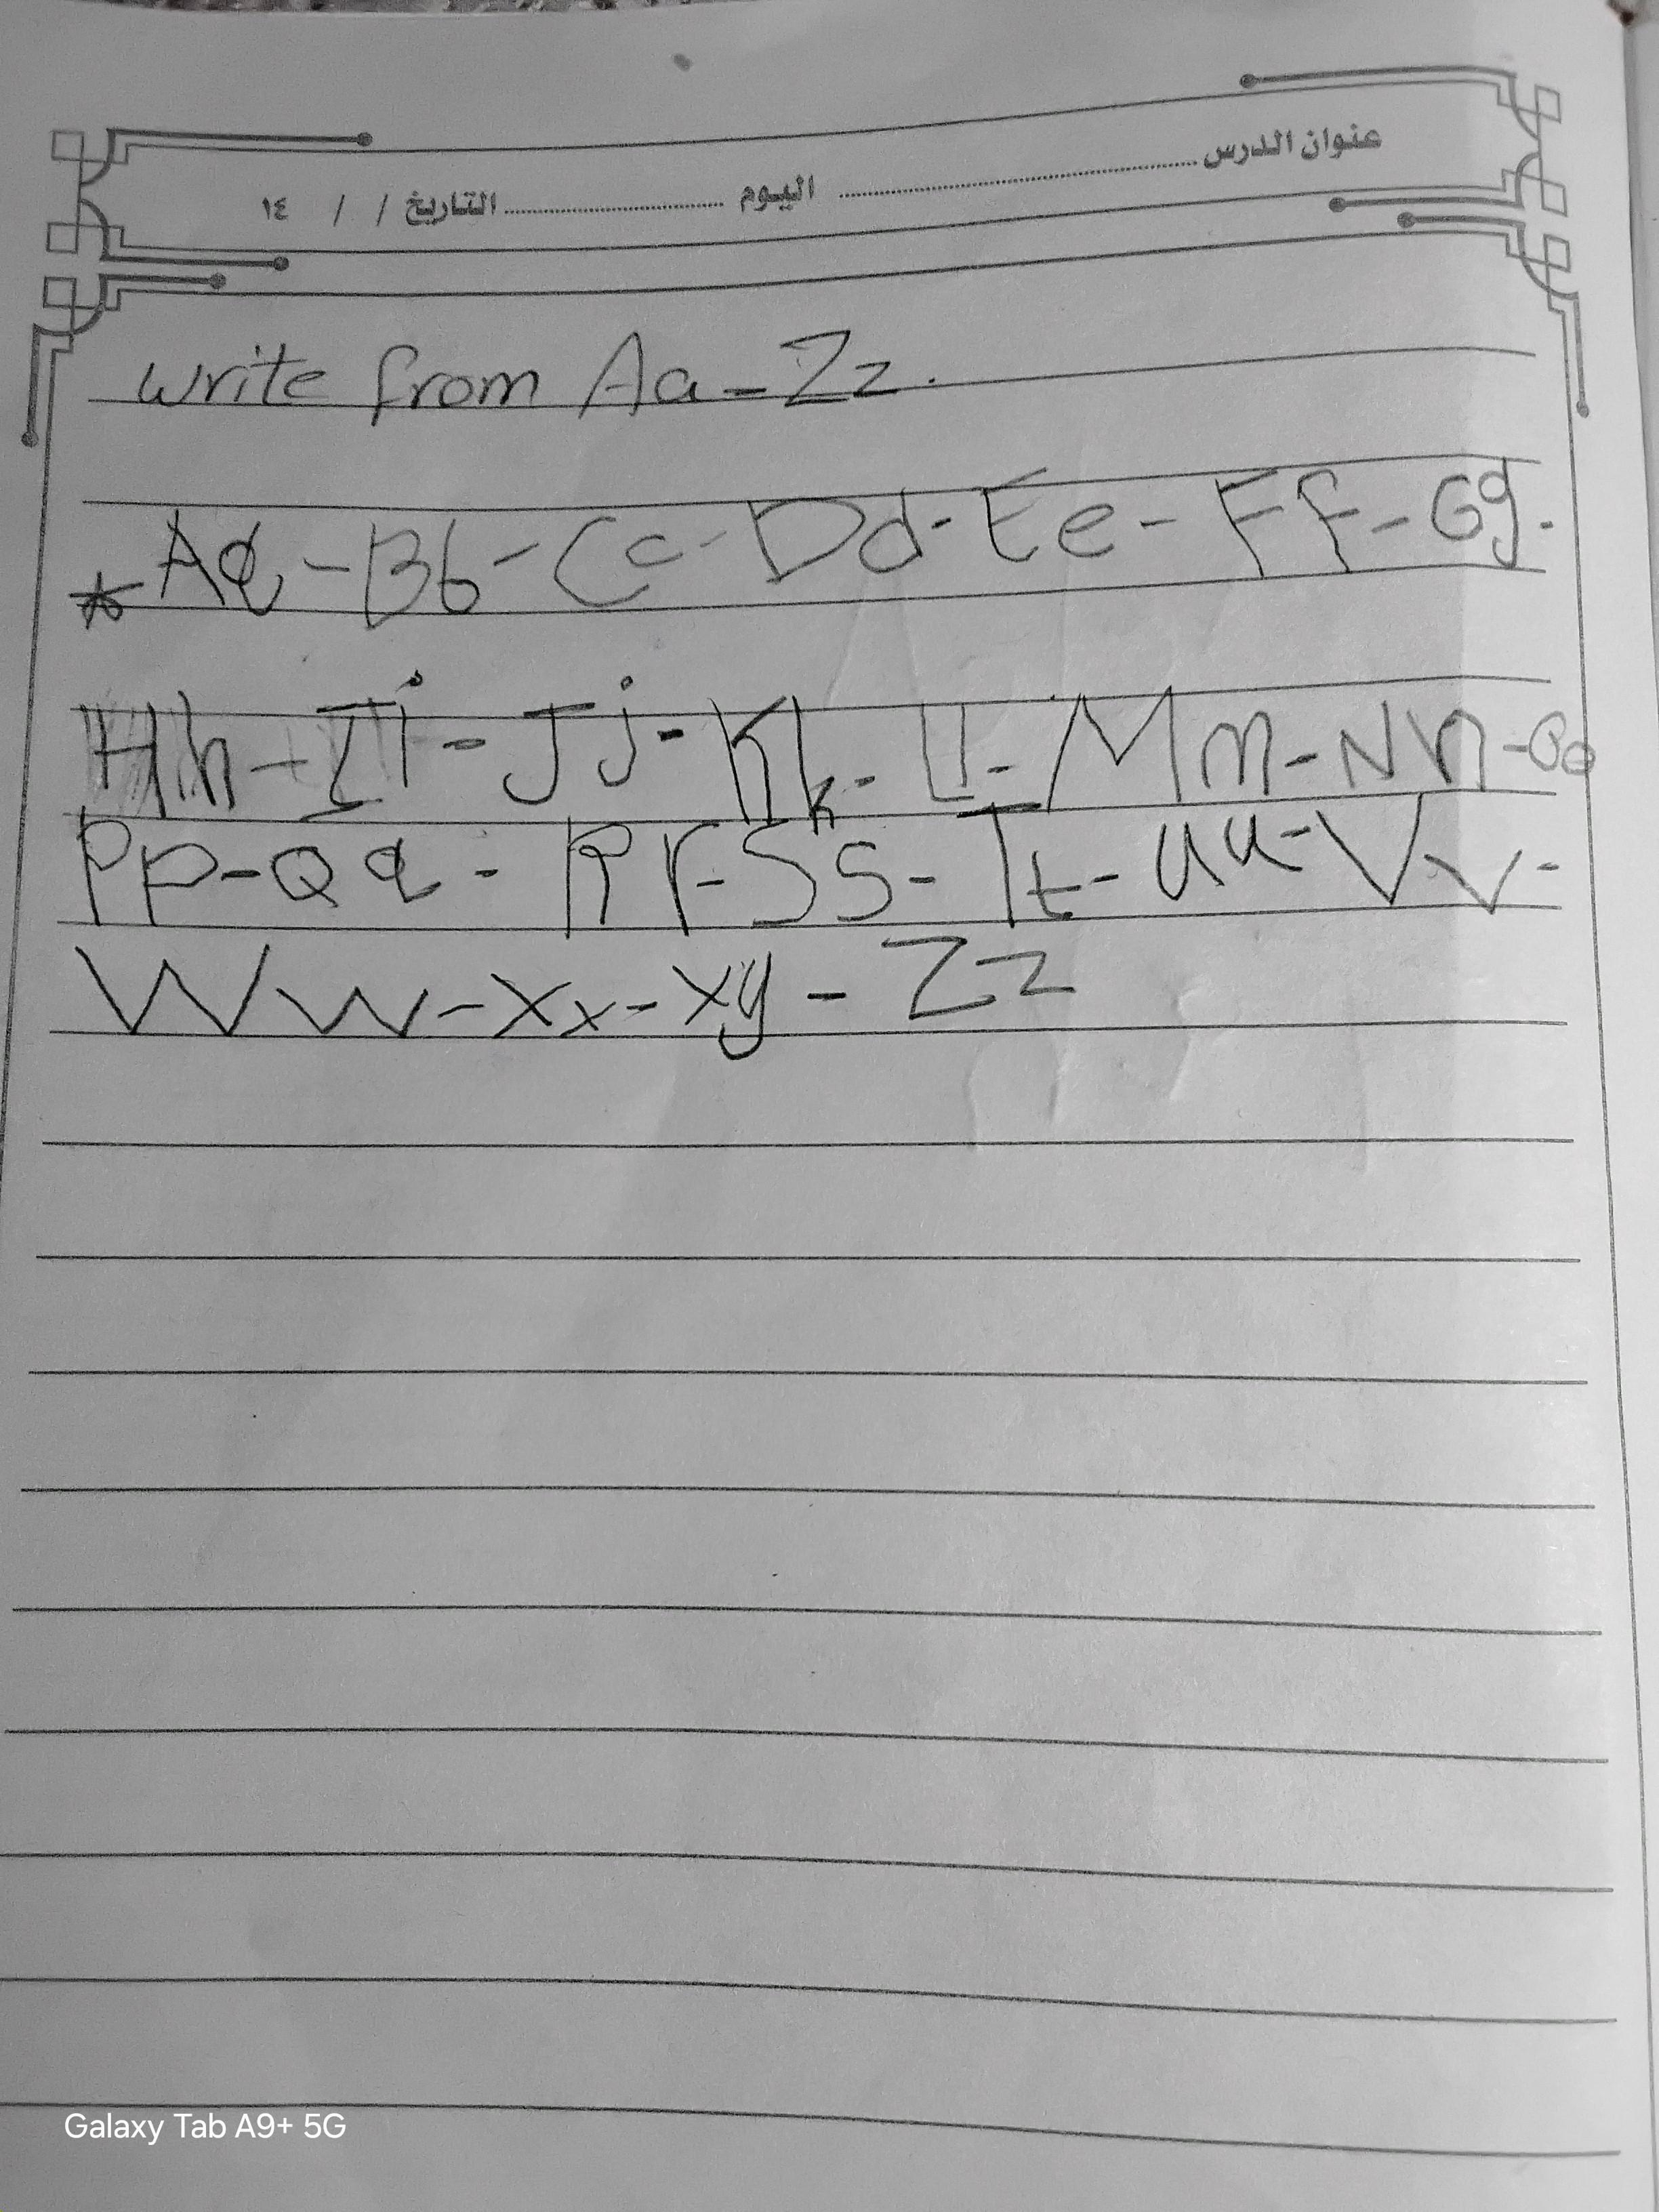 عنوان الدرس ........................ اليوم ........................ التاريخ / / ١٤
write from Aa - Zz.
* Aa - Bb - Cc - Dd - Ee - Ff - Gg -
Hh - Ii - Jj - Kk - Ll - Mm - Nn - Oo
Pp - Qq - Rr - Ss - Tt - uu - Vv -
Ww - Xx - xy - Zz
Galaxy Tab A9+ 5G